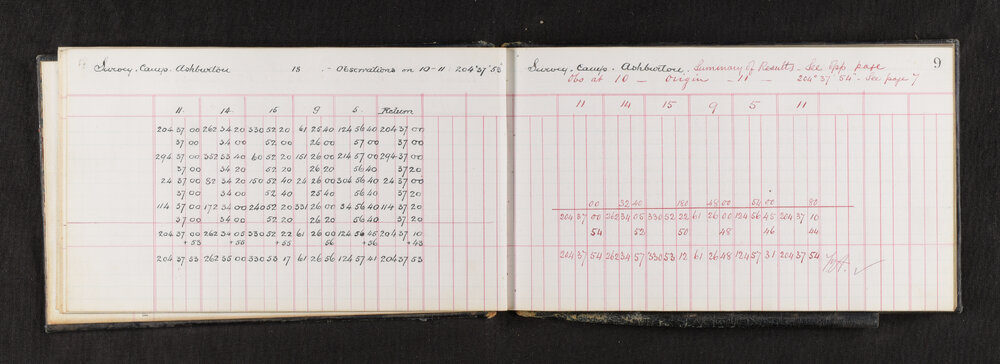 Survey. Camp. Ashburton 18 - Observations on 10-11: 204°37'53"
11. 14. 15 9 5. Return
204 37 00 262 34 20 330 52 20 61 25 40 124 56 40 204 37 00
37 00 34 00 52 00 26 00 57 00 37 00
294 37 00 352 33 40 60 52 20 151 26 00 214 57 00 294 37 00
37 00 34 20 52 20 26 20 56 40 37 20
24 37 00 82 34 20 150 52 40 241 26 00 304 56 40 24 37 00
37 00 34 00 52 40 25 40 56 40 37 20
114 37 00 172 34 00 240 52 20 331 26 00 34 56 40 114 37 20
37 00 34 00 52 20 26 20 56 40 37 20
204 37 00 262 34 05 330 52 22 61 26 00 124 56 45 204 37 10
+53 +55 +55 56 +56 +43
204 37 53 262 35 00 330 53 17 61 26 56 124 57 41 204 37 53
Survey. Camp. Ashburton. Summary of Results - See Opp page 9
Obs at 10 - origin - 11 - 204° 37' 54" - See page 7
11 14 15 9 5 11
00 32 40 180 48 00 54 00 80
204 37 00 262 34 05 330 52 22 61 26 00 124 56 45 204 37 10
54 52 50 48 46 44
204 37 54 262 34 57 330 53 12 61 26 48 124 57 31 204 37 54